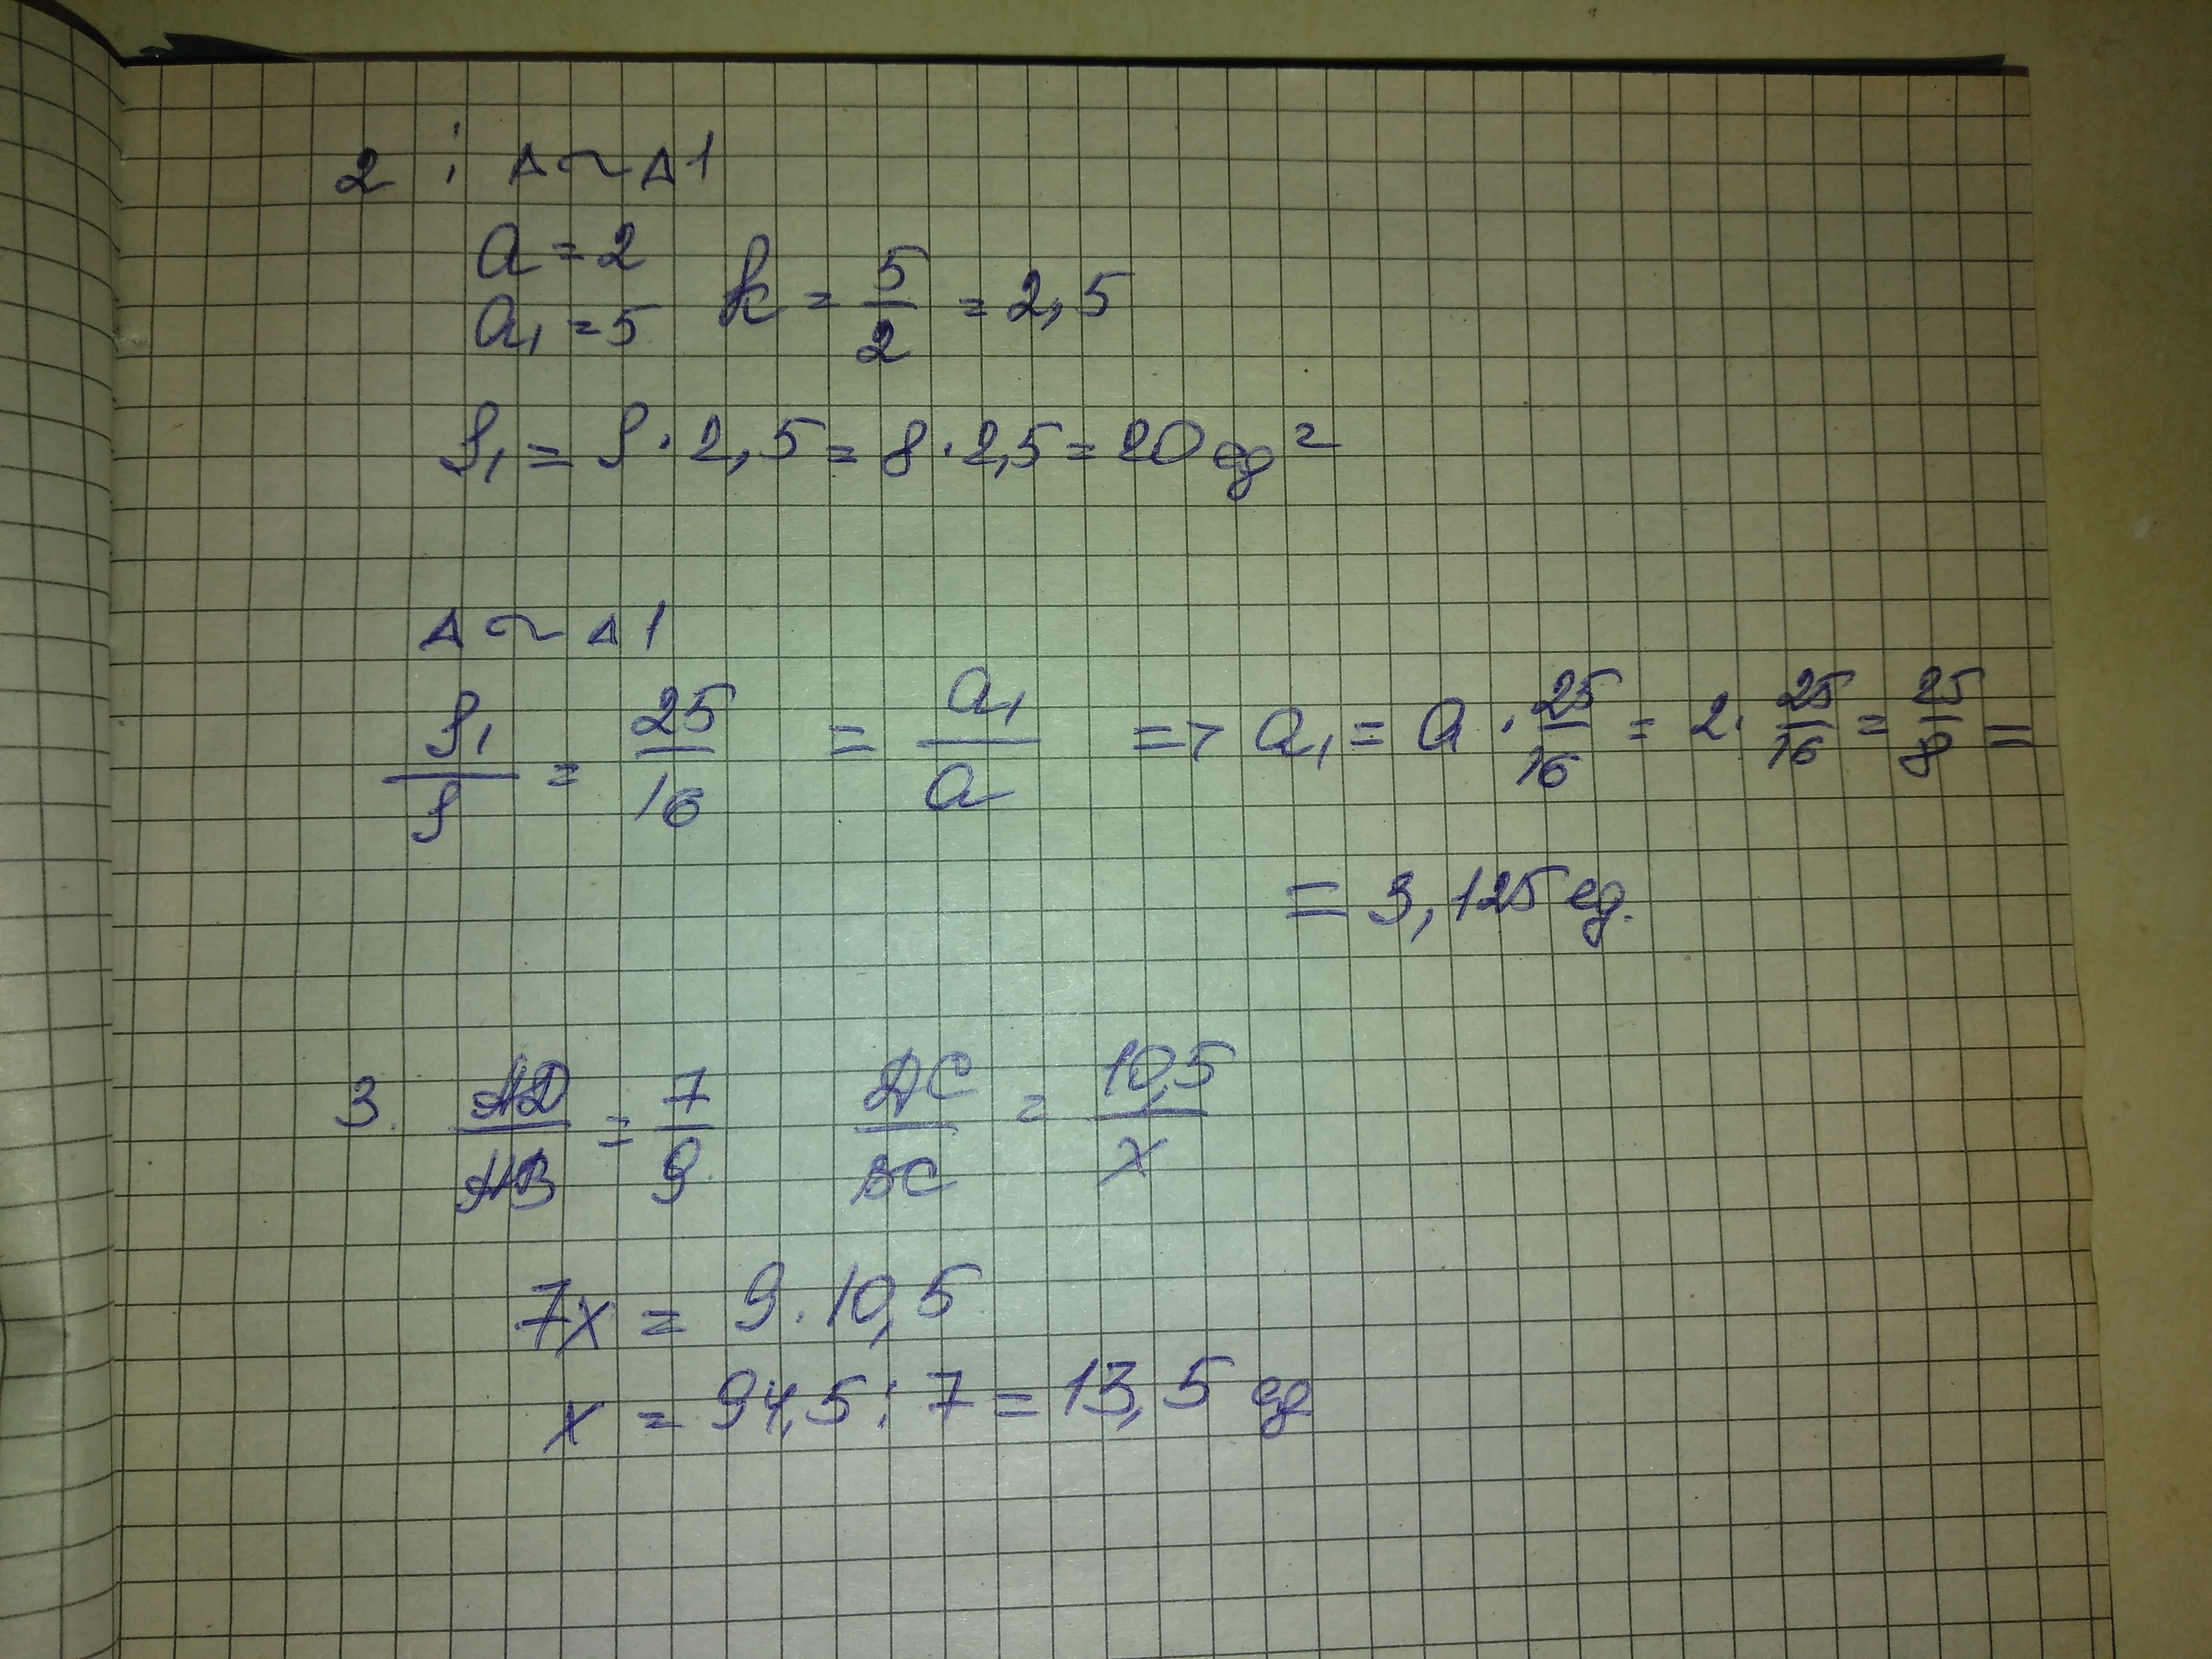 2 : Δ ~ Δ1
a = 2
a₁ = 5 k = 5/2 = 2,5
S₁ = S · 2,5 = 8 · 2,5 = 20 ед²
Δ ~ Δ1
S₁/S = 25/16 = a₁/a => a₁ = a · 25/16 = 2 · 25/16 = 25/8 =
= 3,125 ед.
3. AD/AB = 7/9 DC/BC = 10,5/x
7x = 9 · 10,5
x = 94,5 : 7 = 13,5 ед